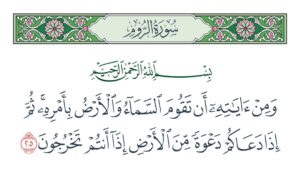 سُورَةُ الرُّومِ
بِسْمِ ٱللَّهِ ٱلرَّحْمَٰنِ ٱلرَّحِيمِ
وَمِنْ ءَايَٰتِهِۦٓ أَن تَقُومَ ٱلسَّمَآءُ وَٱلْأَرْضُ بِأَمْرِهِۦ ۚ ثُمَّ
إِذَا دَعَاكُمْ دَعْوَةً مِّنَ ٱلْأَرْضِ إِذَآ أَنتُمْ تَخْرُجُونَ ٢٥